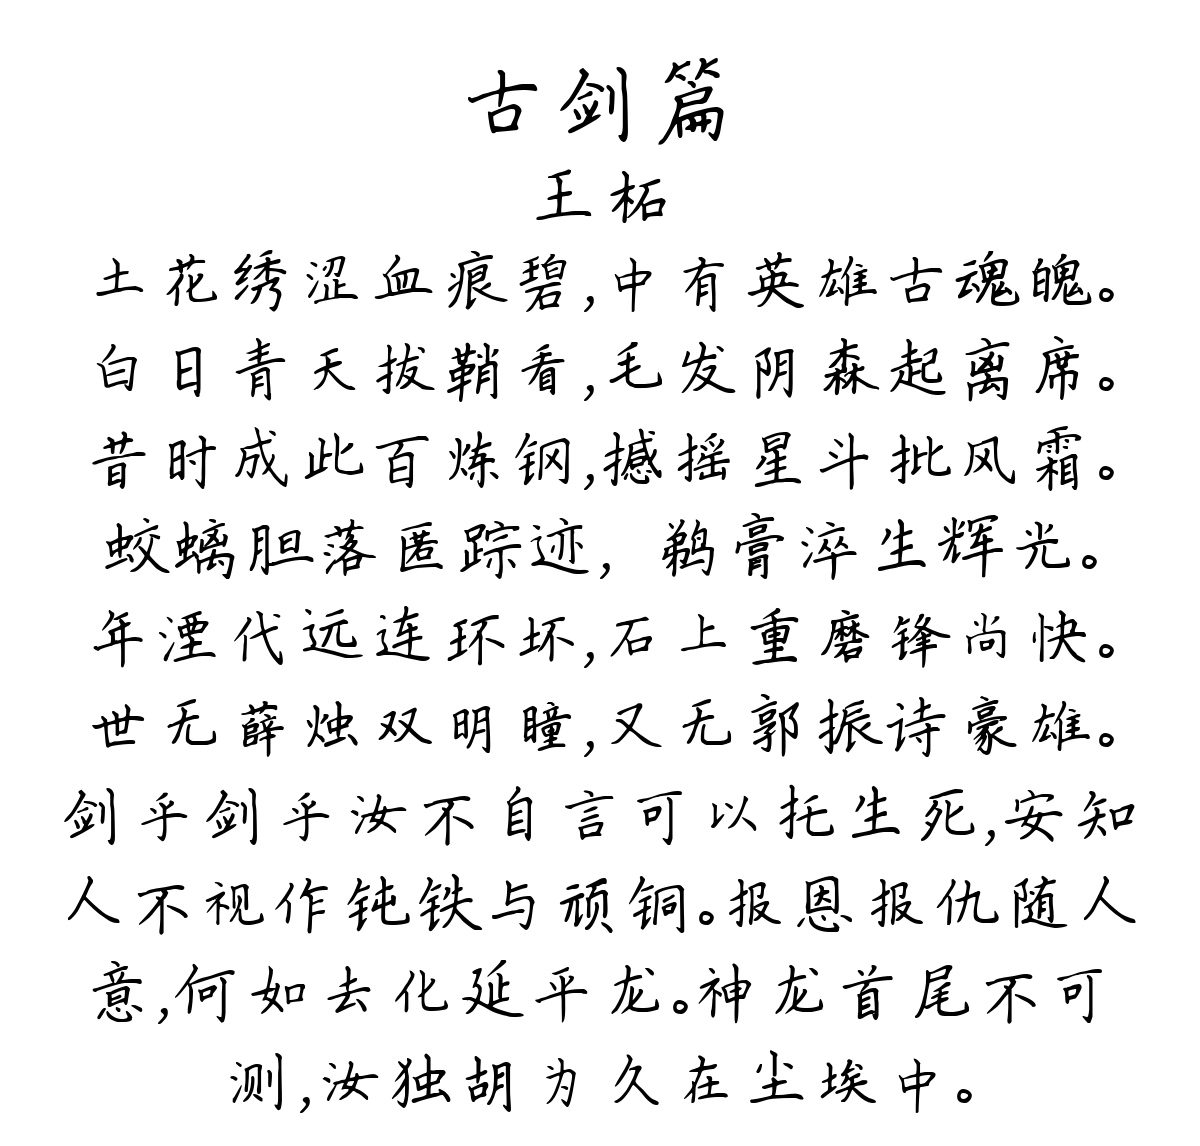 古剑篇
王柘
土花绣涩血痕碧,中有英雄古魂魄。
白日青天拔鞘看,毛发阴森起离席。
昔时成此百炼钢,撼摇星斗批风霜。
蛟螭胆落匿踪迹，鹈膏淬生辉光。
年湮代远连环坏,石上重磨锋尚快。
世无薛烛双明瞳,又无郭振诗豪雄。
剑乎剑乎汝不自言可以托生死,安知
人不视作钝铁与顽铜。报恩报仇随人
意,何如去化延平龙。神龙首尾不可
测,汝独胡为久在尘埃中。